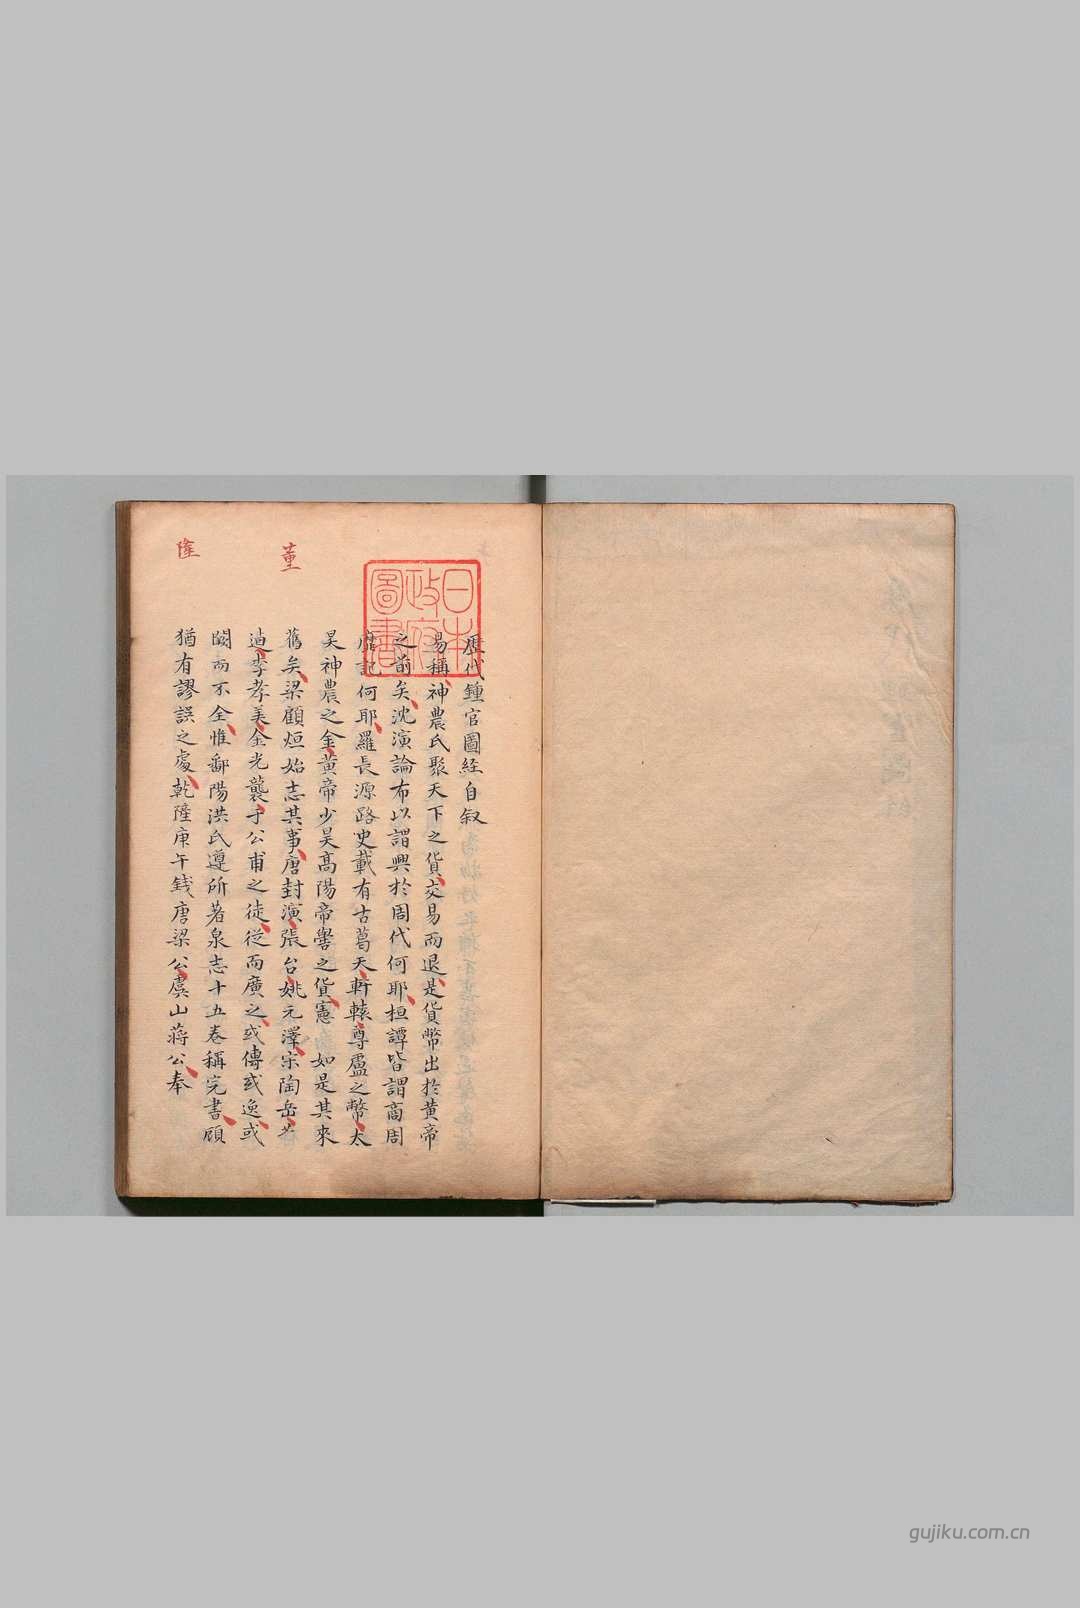 歷代鍾官圖経自叙
易稱神農氏聚天下之貨交易而退是貨幣出於黄帝
之前矣沈演論布以謂興於周代何耶桓譚皆謂商周
靡記何耶羅長源路史載有古葛天軒轅尊盧之幣太
昊神農之金黄帝少昊高陽帝嚳之貨憲如是其來
舊矣梁顧烜始志其事唐封演張台姚元澤宋陶岳
迪李孝美金光襲于公甫之徒從而廣之或傳或逸或
闕而不全惟鄱陽洪氏遵所著泉志十五卷稱完書顧
猶有謬誤之處乾隆庚午錢唐梁公虞山蔣公奉
董
隆
日本
政府
圖書
gujiku.com.cn